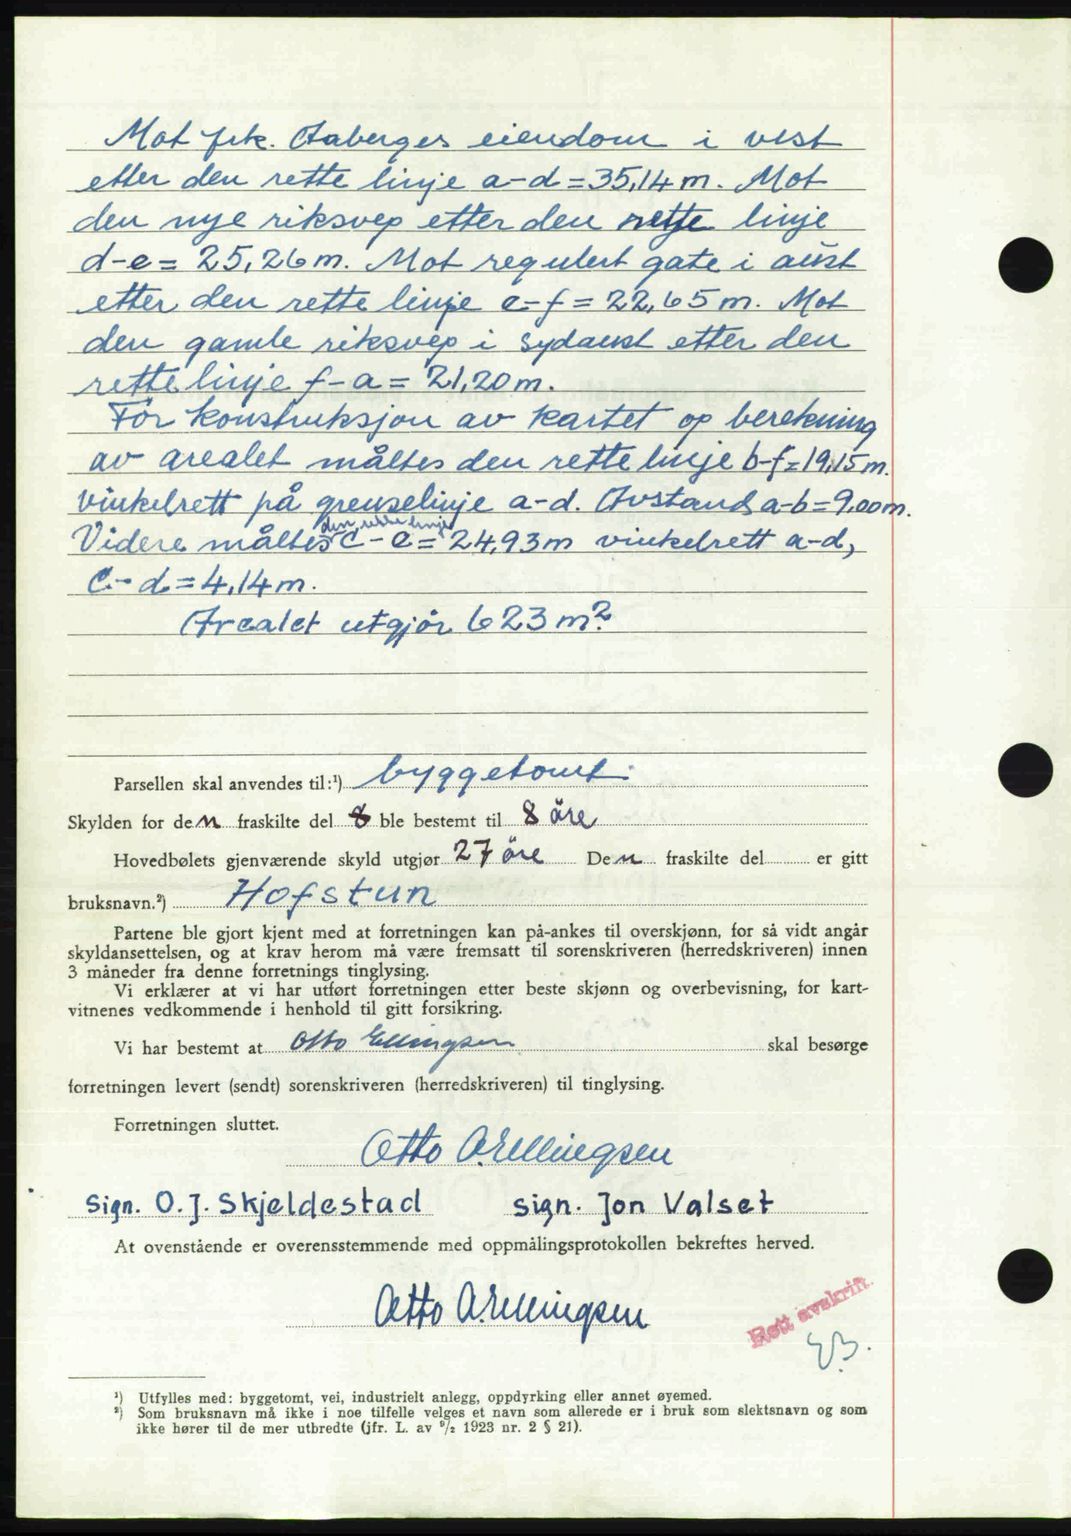 Mot frk. Aaberges eiendom i vest
etter den rette linje a-d = 35,14 m. Mot
den nye riksveg etter den rette linje
d-e = 25,26 m. Mot regulert gate i aust
etter den rette linje e-f = 22,65 m. Mot
den gamle riksveg i sydaust etter den
rette linje f-a = 21,20 m.
For konstruksjon av kartet og berekning
av arealet måltes den rette linje b-f = 19,15 m.
vinkelrett på grenselinje a-d. Avstand a-b = 9,00 m.
den rette linje
Videre måltes c-e = 24,93 m vinkelrett a-d,
c-d = 4,14 m.
Arealet utgjör 623 m².
Parsellen skal anvendes til:¹) byggetomt.
Skylden for den fraskilte del 8 ble bestemt til 8 öre
Hovedbølets gjenværende skyld utgjør 27 öre Den fraskilte del er gitt
bruksnavn.²) Hofstun
Partene ble gjort kjent med at forretningen kan på-ankes til overskjønn, for så vidt angår
skyldansettelsen, og at krav herom må være fremsatt til sorenskriveren (herredskriveren) innen
3 måneder fra denne forretnings tinglysing.
Vi erklærer at vi har utført forretningen etter beste skjønn og overbevisning, for kart-
vitnenes vedkommende i henhold til gitt forsikring.
Vi har bestemt at Otto Ellingsen skal besørge
forretningen levert (sendt) sorenskriveren (herredskriveren) til tinglysing.
Forretningen sluttet.
Otto A. Ellingsen
Sign. O. J. Skjeldestad sign. Jon Valset
At ovenstående er overensstemmende med oppmålingsprotokollen bekreftes herved.
Otto A. Ellingsen
Rett avskrift.
EB.
¹) Utfylles med: byggetomt, vei, industrielt anlegg, oppdyrking eller annet øyemed.
²) Som bruksnavn må ikke i noe tilfelle velges et navn som allerede er i bruk som slektsnavn og som
ikke hører til de mer utbredte (jfr. L. av ⁹/₂ 1923 nr. 2 § 21).